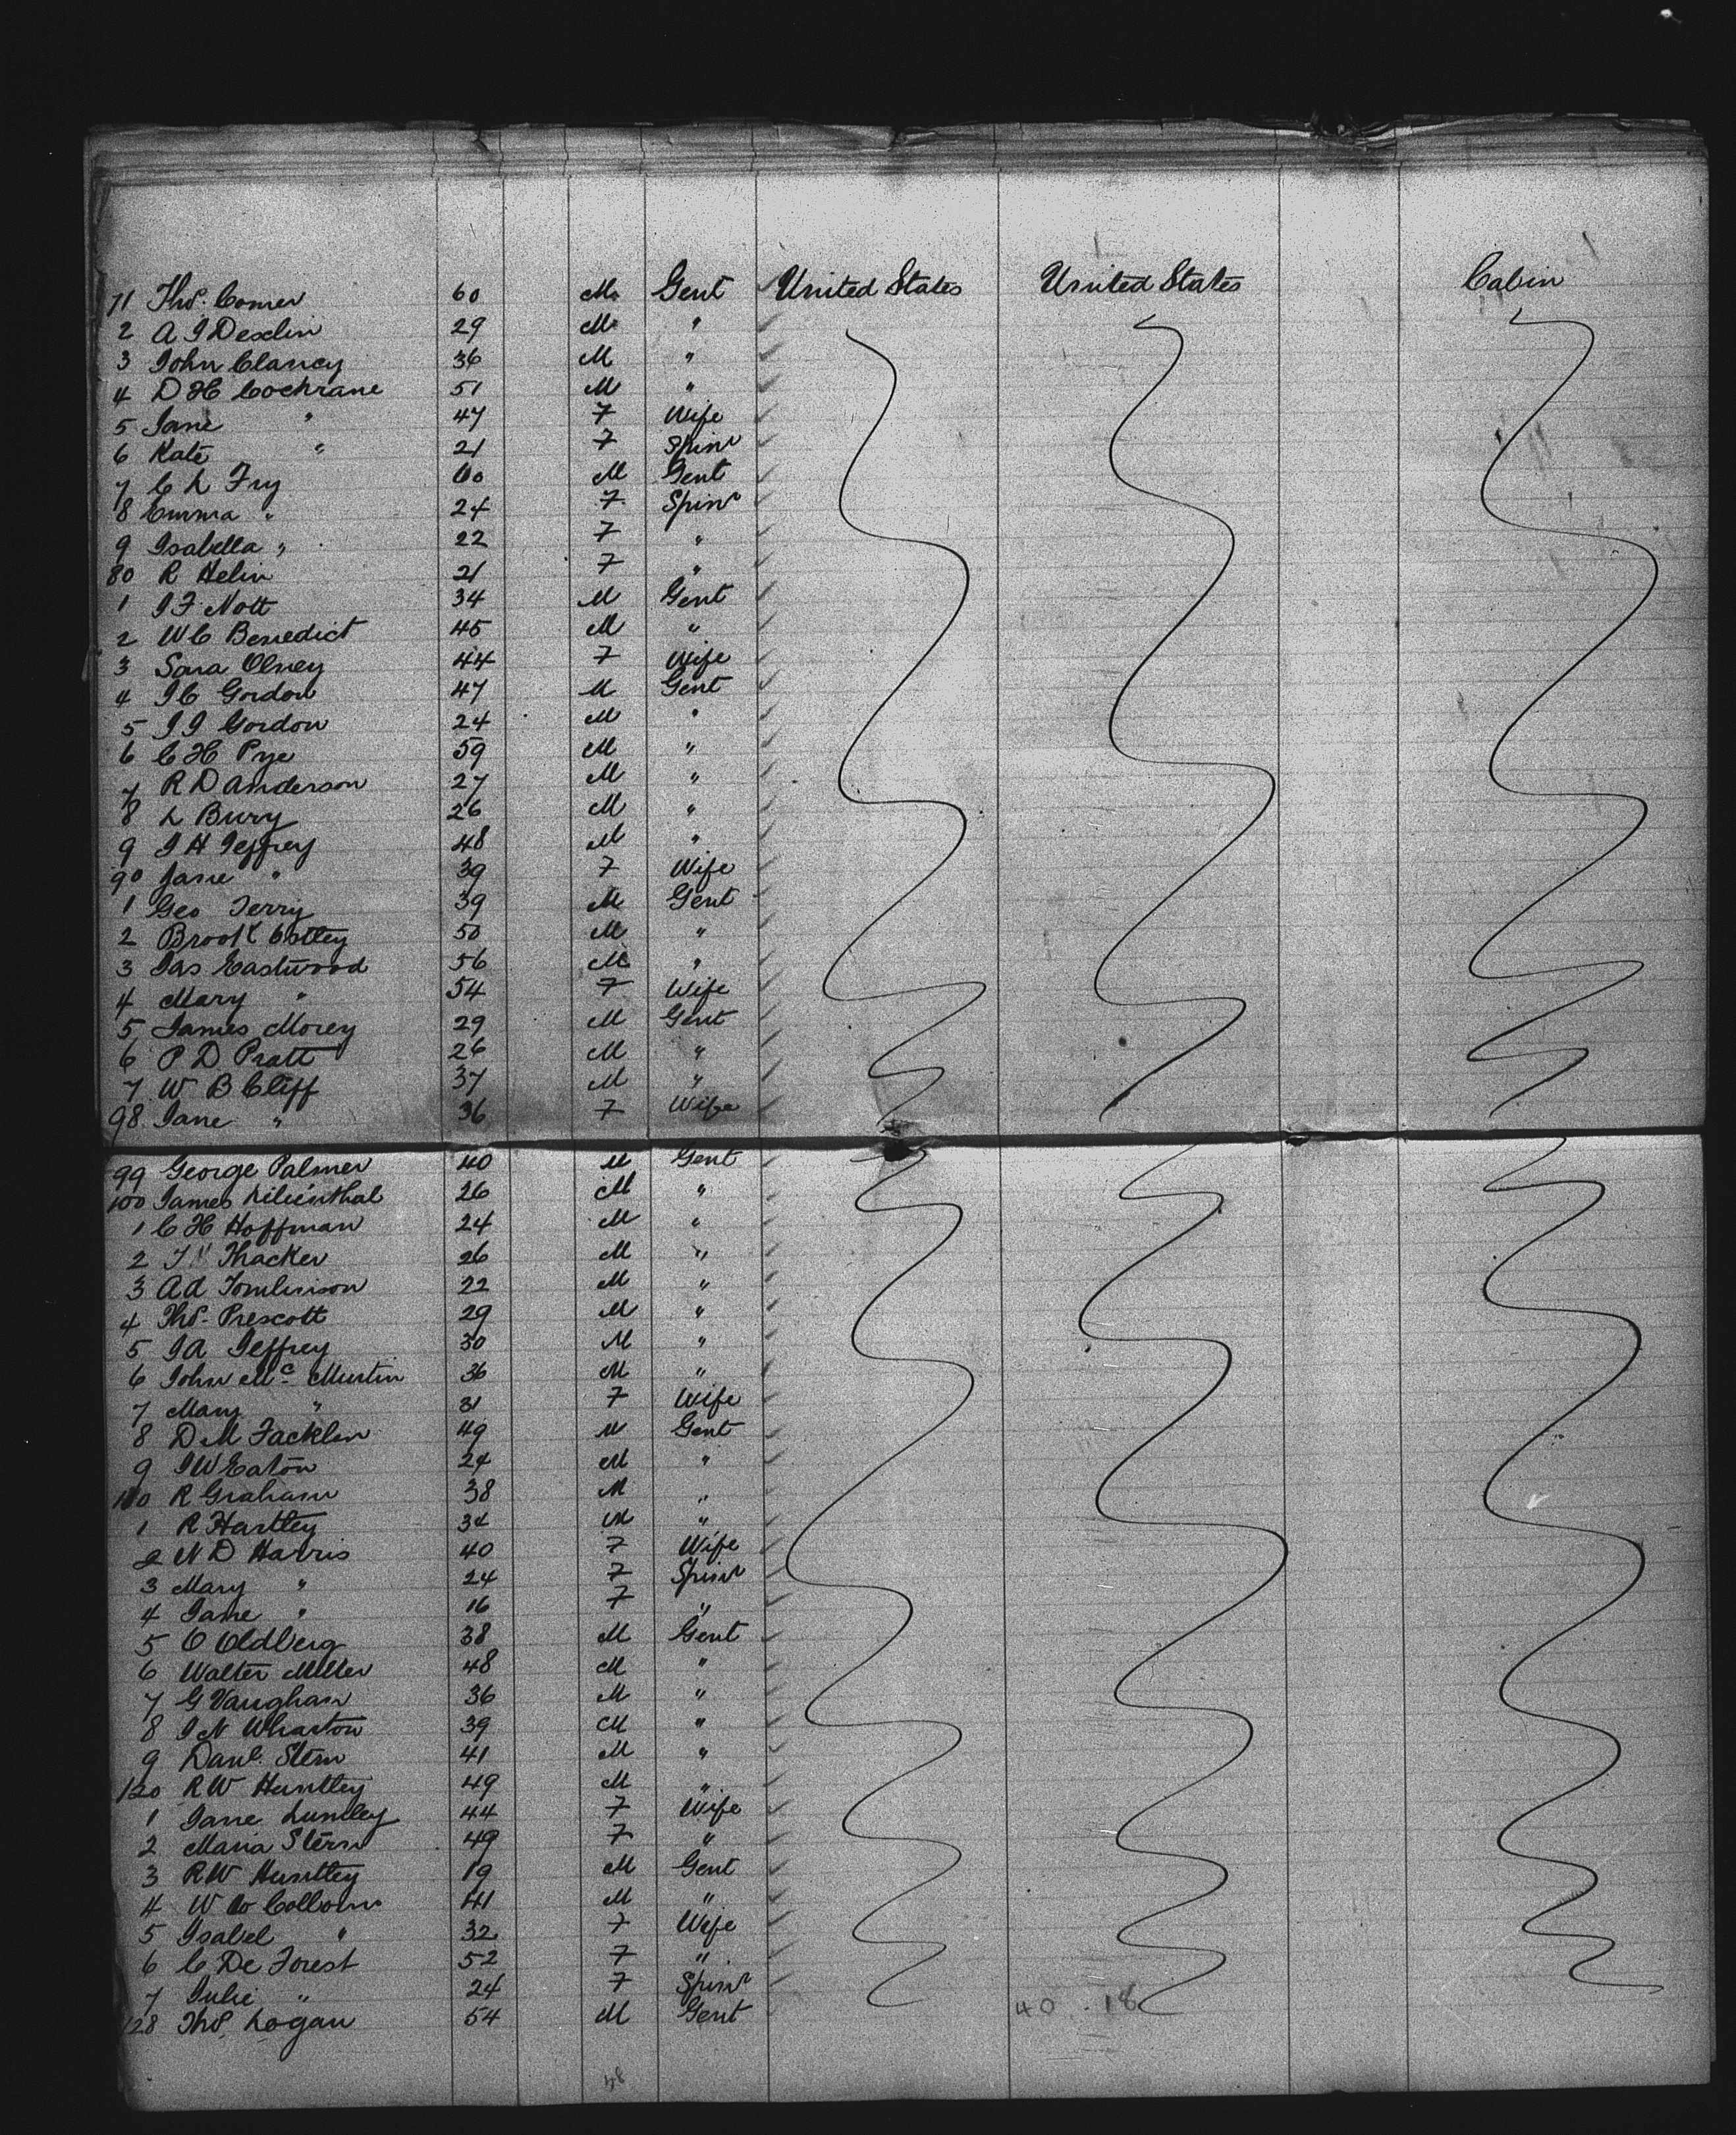 71 Thos. Comer 60 M Gent United States United States Cabin
2 A J Dexlin 29 M "
3 John Clancy 36 M "
4 D H Cochrane 51 M "
5 Jane " 47 F Wife
6 Kate " 21 F Spinr
7 C L Fry 60 M Gent
8 Emma " 24 F Spinr
9 Isabella " 22 F "
80 R Helin 21 F "
1 J F Nott 34 M Gent
2 W C Benedict 45 M "
3 Sara Olney 44 F Wife
4 J C Gordon 47 M Gent
5 J J Gordon 24 M "
6 C H Pye 59 M "
7 R D Anderson 27 M "
8 L Bury 26 M "
9 J H Jeffrey 48 M "
90 Jane " 39 F Wife
1 Geo Terry 39 M Gent
2 Brook Cottey 50 M "
3 Jas Eastwood 56 M "
4 Mary " 54 F Wife
5 James Morey 29 M Gent
6 P D Pratt 26 M "
7 W B Cliff 37 M "
98 Jane " 36 F Wife
99 George Palmer 40 M Gent
100 James Lilienthal 26 M "
1 C H Hoffman 24 M "
2 T Thacker 26 M "
3 A d Tomlinson 22 M "
4 Thos. Prescott 29 M "
5 J A Jeffrey 30 M "
6 John Mc Murtin 36 M "
7 Mary " 31 F Wife
8 D M Facklin 49 M Gent
9 J W Eaton 24 M "
110 R Graham 38 M "
1 R Hartley 34 M "
2 N D Harris 40 F Wife
3 Mary " 24 F Spinr
4 Jane " 16 F "
5 O Oldberg 38 M Gent
6 Walter Miller 48 M "
7 G Vaughan 36 M "
8 J N Wharton 39 M "
9 Danl. Stern 41 M "
120 R W Huntley 49 M "
1 Jane Lumley 44 F Wife
2 Maria Stern 49 F "
3 R W Huntley 19 M Gent
4 W Colborn 41 M "
5 Isabel " 32 F Wife
6 C De Forest 52 F "
7 Julie " 24 F Spinr
128 Thos. Logan 54 M Gent 40 . 18